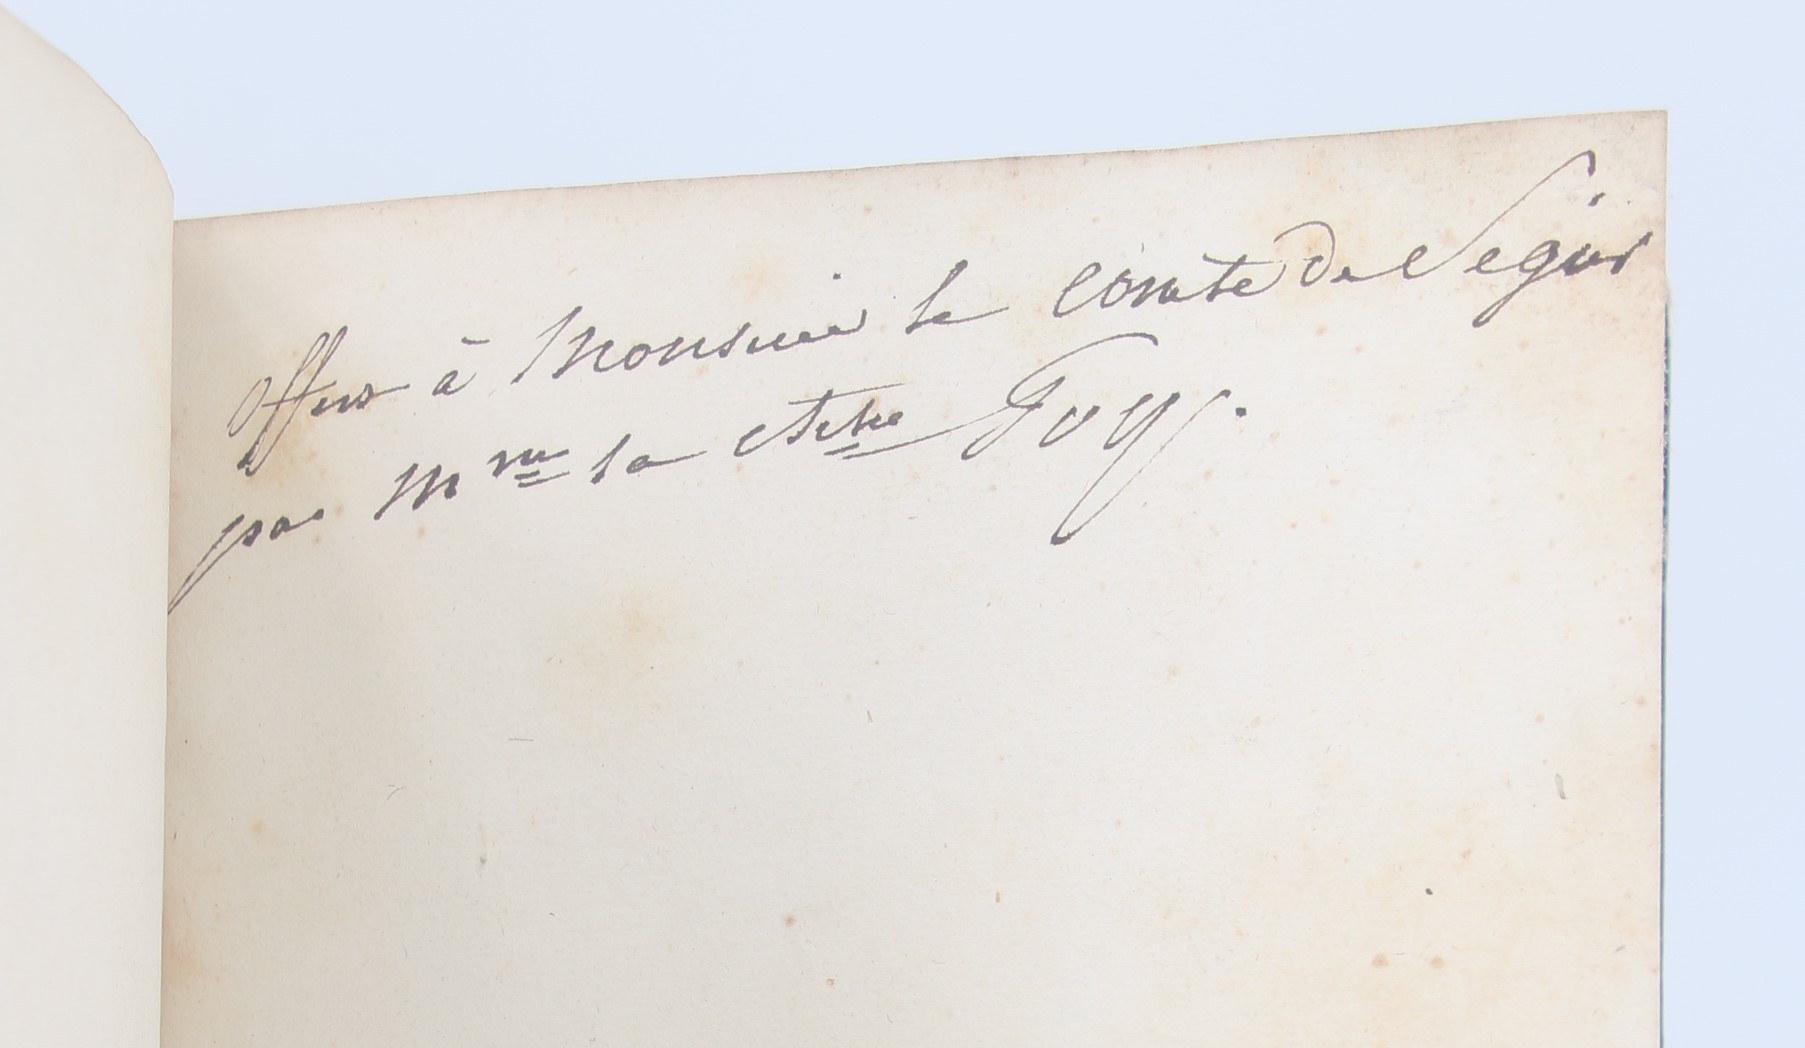 Offert à Monsieur le Comte de Ségur
par Mme la Ctsse Foy.